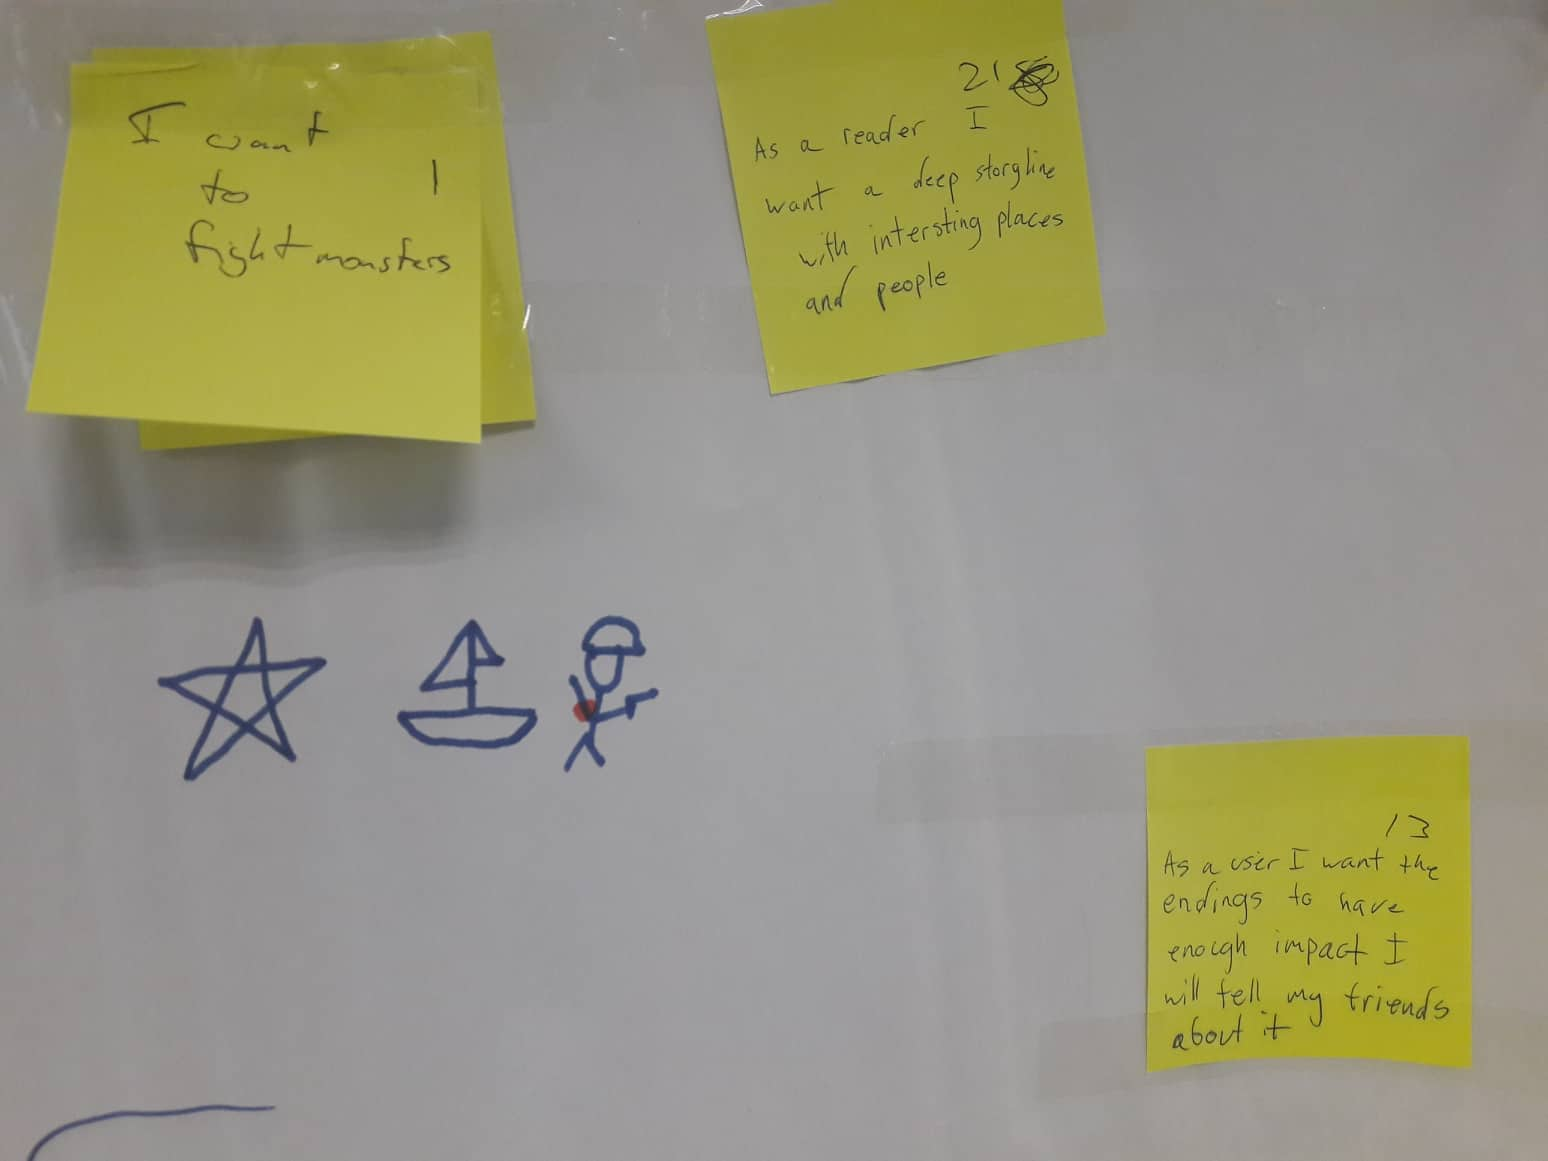 I want
to 1
fight monsters
21
As a reader I
want a deep storyline
with intersting places
and people
13
As a user I want the
endings to have
enough impact I
will tell my friends
about it